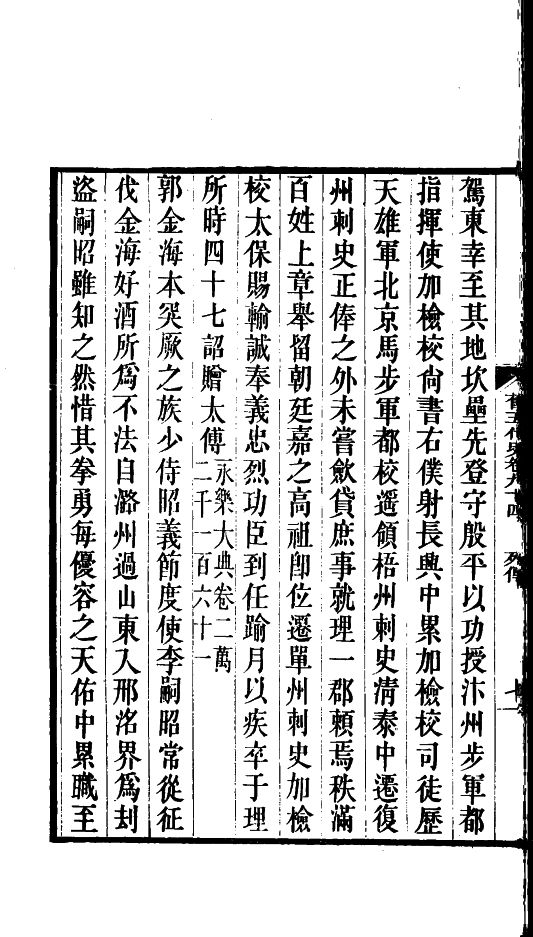 駕東幸至其地坎壘先登守殷平以功授汴州步軍都
指揮使加檢校尙書右僕射長興中累加檢校司徒歷
天雄軍北京馬步軍都校遥領梧州刺史淸泰中遷復
州刺史正俸之外未嘗斂貸庶事就理一郡賴焉秩滿
百姓上章舉留朝廷嘉之高祖卽位遷單州刺史加檢
校太保賜輸誠奉義忠烈功臣到任踰月以疾卒于理
所時四十七詔贈太傅永樂大典卷二萬二千一百六十一
郭金海本突厥之族少侍昭義節度使李嗣昭常從征
伐金海好酒所爲不法自潞州過山東入邢洺界爲刦
盜嗣昭雖知之然惜其拳勇每優容之天佑中累職至
舊五代史卷九十四 列傳